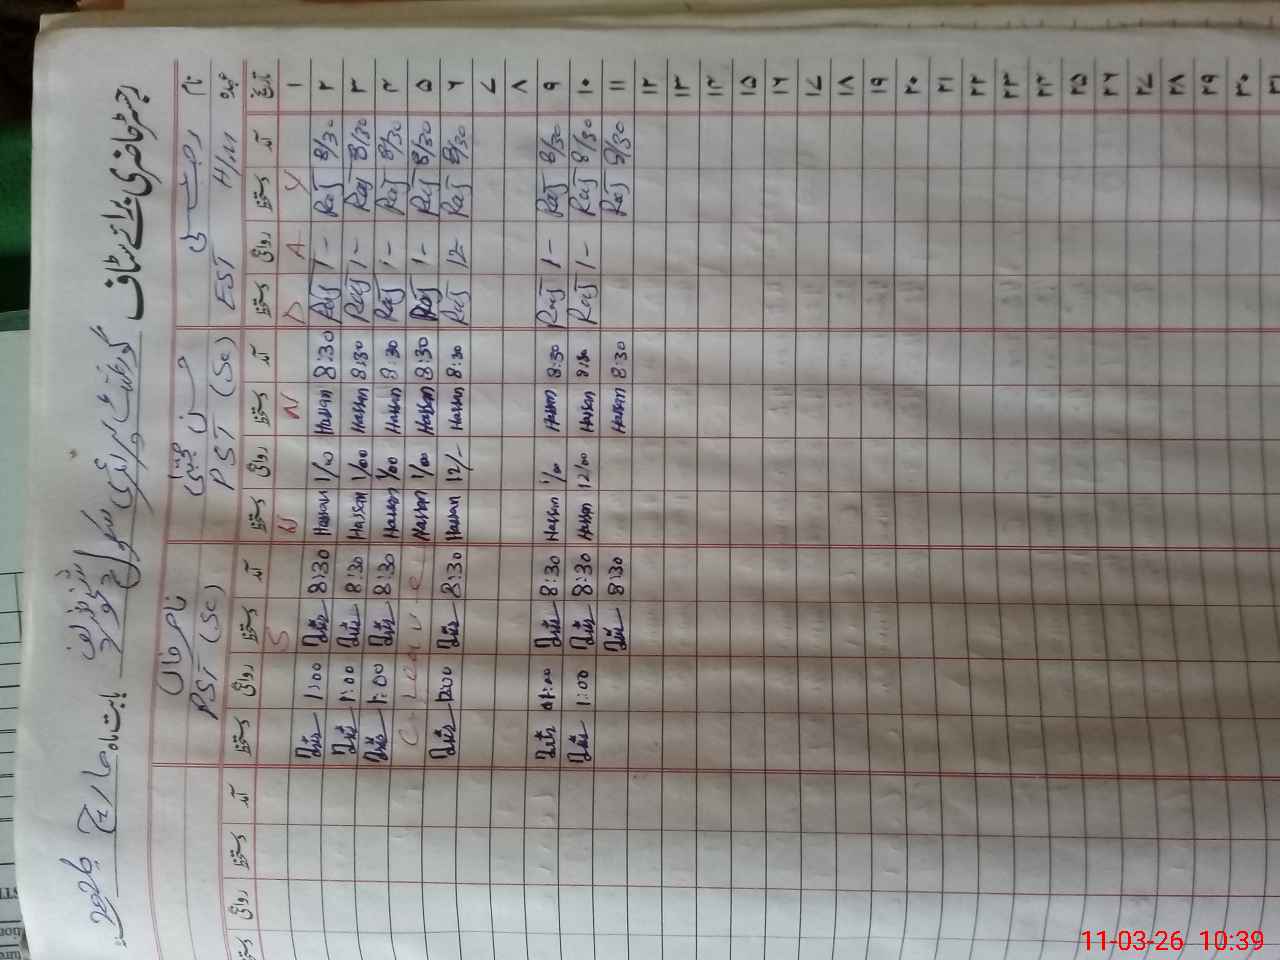 رجسٹر حاضری برائے سٹاف گورنمنٹ پرائمری سکول
بابت ماہ مارچ 2026ء
نام رحمت حسن مجتبیٰ ناصر خان
عہدہ EST H/M PST (Sc) PST (Sc)
تاریخ آمد دستخط روانگی دستخط آمد دستخط روانگی دستخط آمد دستخط روانگی دستخط آمد دستخط روانگی دستخط
۱ S U N D A Y
۲ 8/30 Raj 1- Raj 8:30 Hassan 1/00 Hassan 8:30 1:00
۳ 8/30 Raj 1- Raj 8:30 Hassan 1/00 Hassan 8:30 1:00
۴ 8/30 Raj 1- Raj 8:30 Hassan 1/00 Hassan 8:30 1:00
۵ 8/30 Raj 1- Raj 8:30 Hassan 1/00 Hassan C Leave
۶ 8/30 Raj 12- Raj 8:30 Hassan 12/- Hassan 8:30 12:00
۷
۸
۹ 8/30 Raj 1- Raj 8:30 Hassan 1/00 Hassan 8:30 1:00
۱۰ 8/30 Raj 1- Raj 8:30 Hassan 12/00 Hassan 8:30 1:00
۱۱ 8/30 Raj 8:30 Hassan 8:30
۱۲
۱۳
۱۴
۱۵
۱۶
۱۷
۱۸
۱۹
۲۰
۲۱
۲۲
۲۳
۲۴
۲۵
۲۶
۲۷
۲۸
۲۹
۳۰
۳۱
11-03-26 10:39